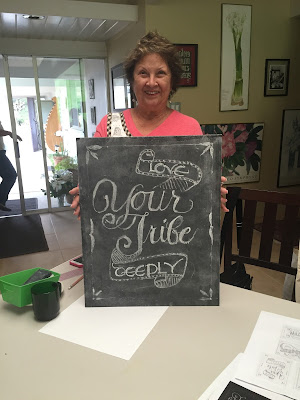 LOVE
Your
Tribe
DEEPLY